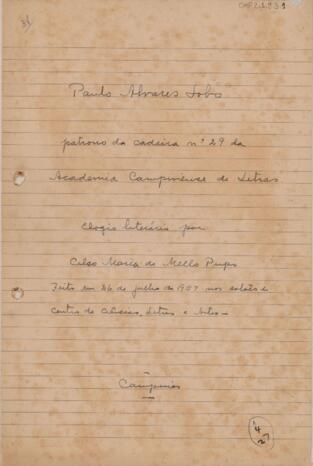 CMP 2.1.9.3 1
Paulo Alvares Lobo
patrono da cadeira nº 29 da
Academia Campinense de Letras
Elogio literário por
Celso Maria de Mello Pupo
Feito em 26 de julho de 1957 nos salões do
Centro de Ciências, Letras e Artes —
Campinas